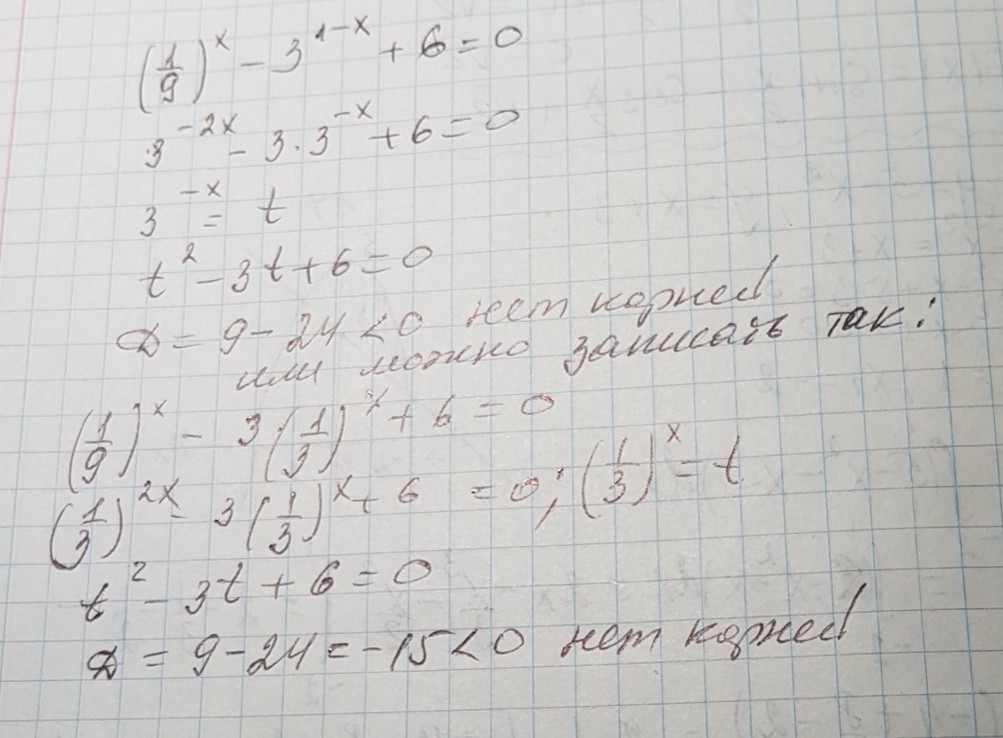 (1/9)^x − 3^(1−x) + 6 = 0
3^(−2x) − 3·3^(−x) + 6 = 0
3^(−x) = t
t² − 3t + 6 = 0
D = 9 − 24 < 0 нет корней
или можно записать так:
(1/9)^x − 3(1/3)^x + 6 = 0
(1/3)^(2x) − 3(1/3)^x + 6 = 0; (1/3)^x = t
t² − 3t + 6 = 0
D = 9 − 24 = −15 < 0 нет корней